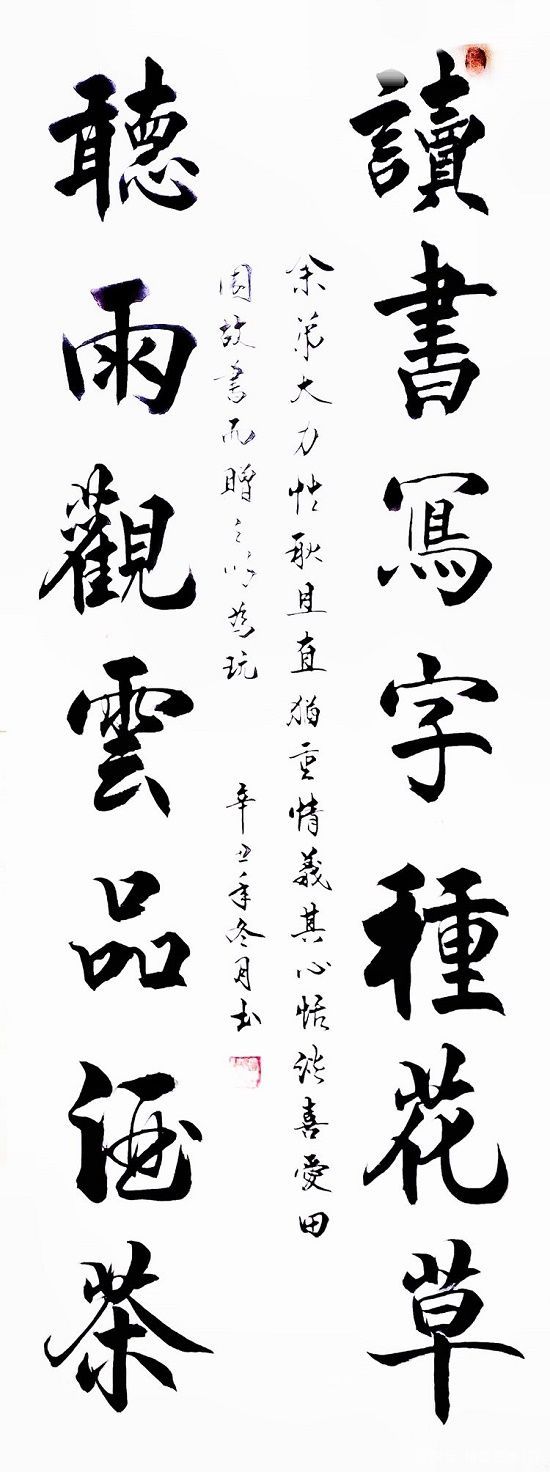 讀書寫字種花草
聽雨觀雲品酒茶
余弟大力性耿且直猶重情義其心恬淡喜愛田
園故書而贈之以為玩
辛丑年冬月